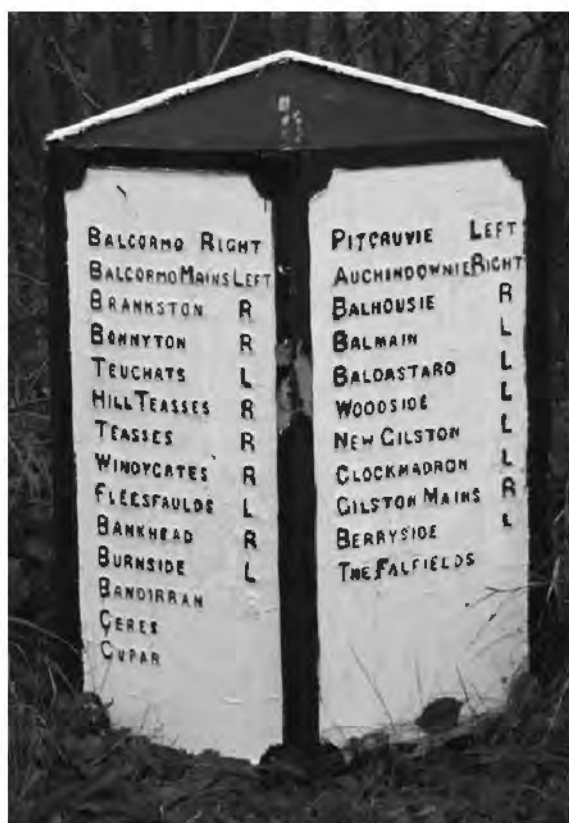 BALCORMO RIGHT
BALCORMO MAINS LEFT
BRANKSTON R
BONNYTON R
TEUCHATS L
HILL TEASSES R
TEASSES R
WINDYGATES R
FLEESFAULDS L
BANKHEAD R
BURNSIDE L
BANDIRRAN
CERES
CUPAR
PITCRUVIE LEFT
AUCHINDOWNIE RIGHT
BALHOUSIE R
BALMAIN L
BALDASTARD L
WOODSIDE L
NEW GILSTON L
CLOCKMADRON L
GILSTON MAINS R
BERRYSIDE L
THE FALFIELDS